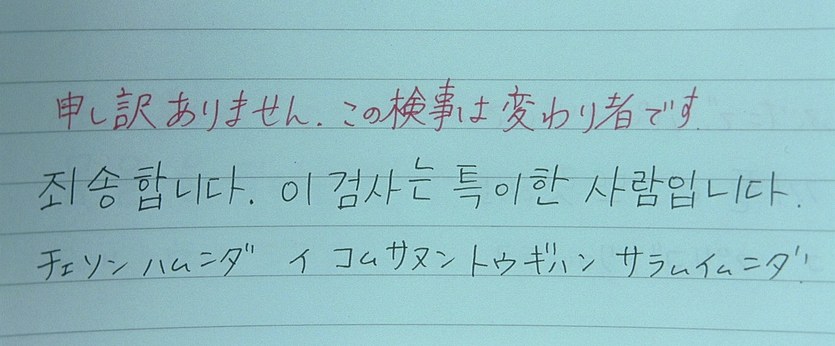 申し訳ありません. この検事は変わり者です.
죄송합니다. 이 검사는 특이한 사람입니다.
チェソンハムニダ イ コムサヌン トウギハン サラムイムニダ.